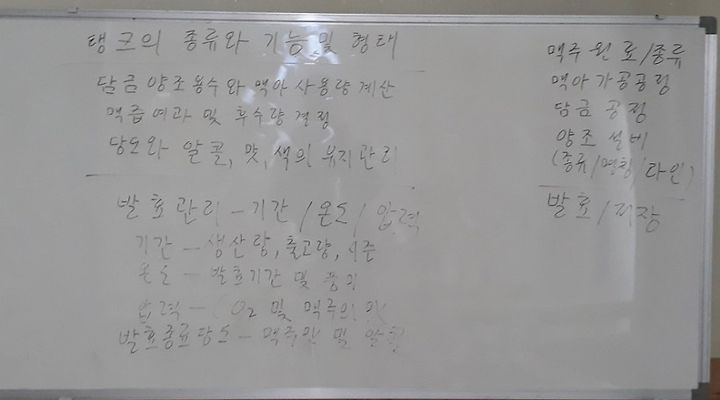 탱크의 종류와 기능 및 형태
담금 양조용수와 맥아 사용량 계산
맥즙여과 및 후수량 결정
당도와 알콜, 맛, 색의 유지관리
발효관리 - 기간 / 온도 / 압력
기간 - 생산량, 출고량, 수준
온도 - 발효기간 및 풍미
압력 - CO2 및 맥주의 맛
발효종료당도 - 맥주맛 및
맥주 원료/종류
맥아가공공정
담금 공정
양조 설비
(종류/명칭/라인)
발효/저장